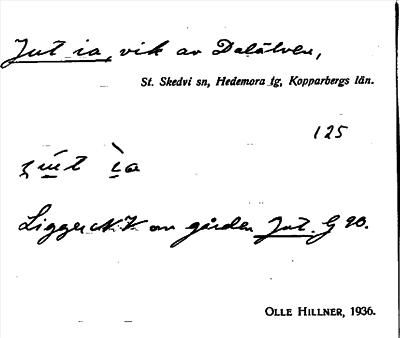 Jut ia, vik av Dalälven,
St. Skedvi sn, Hedemora tg, Kopparbergs län.
125
Ligger N.V. om gården Jut. G 90.
OLLE HILLNER, 1936.